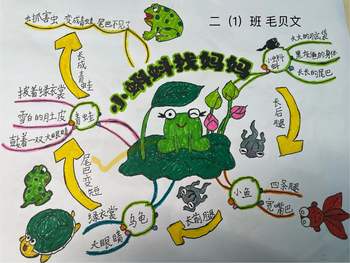 去抓害虫 变成青蛙 尾巴不见了
二（1）班 毛贝文
小蝌蚪找妈妈
小蝌蚪
大大的脑袋
黑灰色的身体
长长的尾巴
长后腿
小鱼
四条腿
宽嘴巴
长前腿
乌龟
绿衣裳
大眼睛
尾巴变短
青蛙
披着绿衣裳
雪白的肚皮
鼓着一双大眼睛
长成青蛙